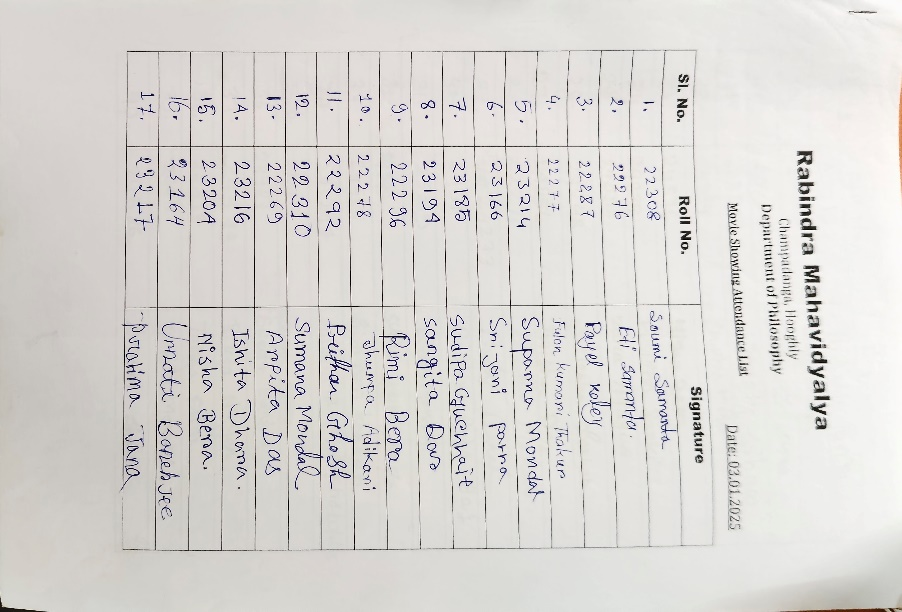 Rabindra Mahavidyalya
Champadanga, Hooghly
Department of Philosophy
Movie Showing Attendance List Date: 03.01.2025
Sl. No. Roll No. Signature
1. 22308 Soumi Samanta
2. 22276 Eti Samanta.
3. 22287 Payel Koley
4. 22277 Kumari Thakur
5. 23214 Suparna Mondal
6. 23166 Srijani parna
7. 23185 Sudipa Guchhait
8. 23194 Sangita Das
9. 22296 Rimi Bera
10. 22278 Jhumpa Adikari
11. 22292 Ghosh
12. 22310 Sumana Mondal
13. 22269 Arpita Das
14. 23216 Ishita Dhara.
15. 23204 Nisha Bera.
16. 23164 Unnati Banerjee
17. 23217 Pratima Jana